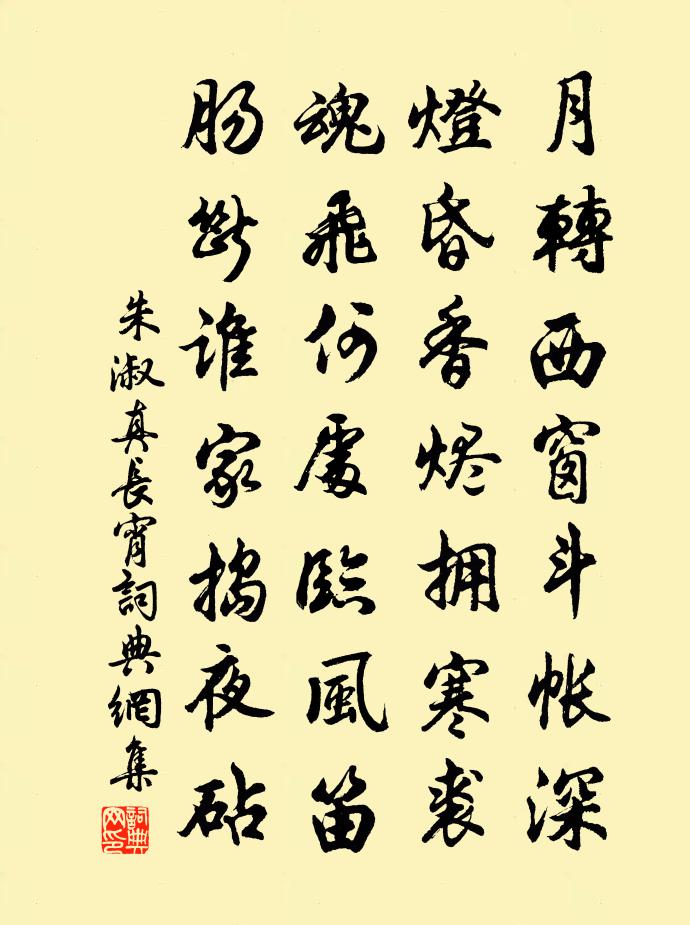 月轉西窗斗帳深
燈昏香烬拥寒衾
魂飛何處臨風笛
腸斷誰家搗夜砧
朱淑真長宵詞典網集
詞典网印